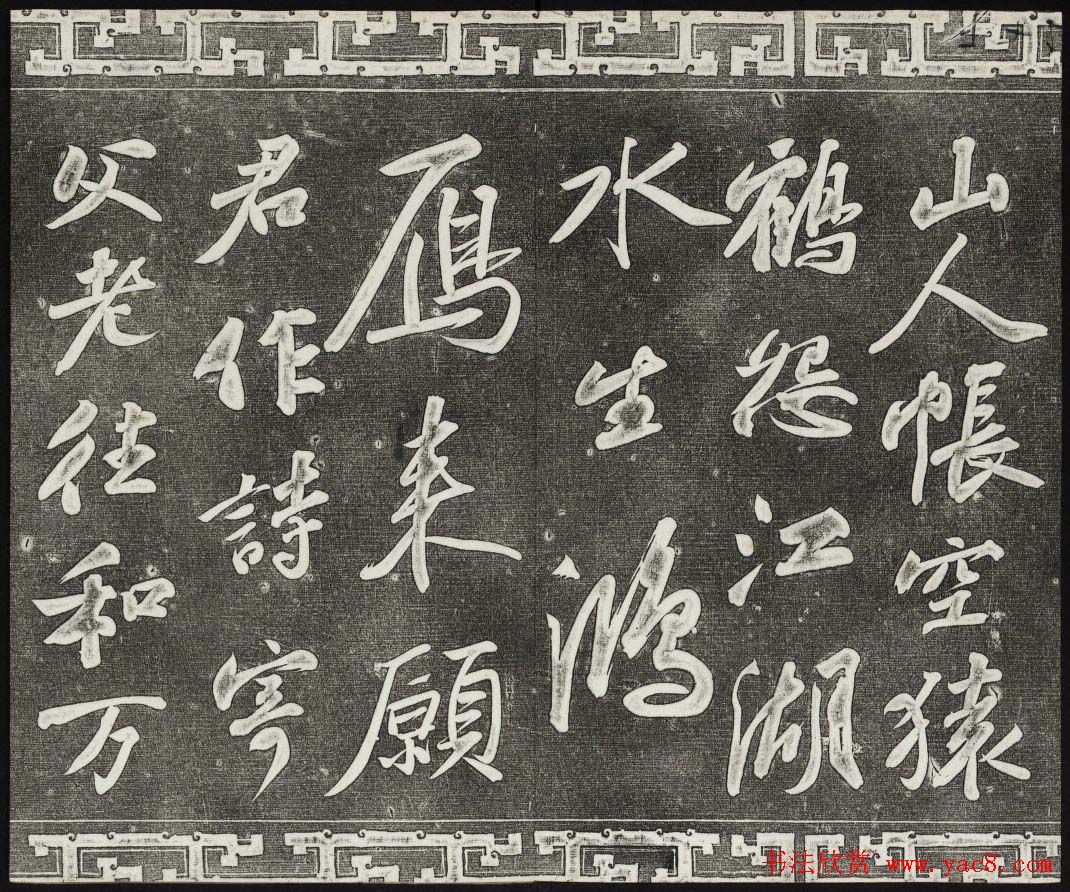 山人帳空猿
鶴怨江湖
水生鴻
鴈来願
君作詩寄
父老往和万
书法欣赏 www.yac8.com